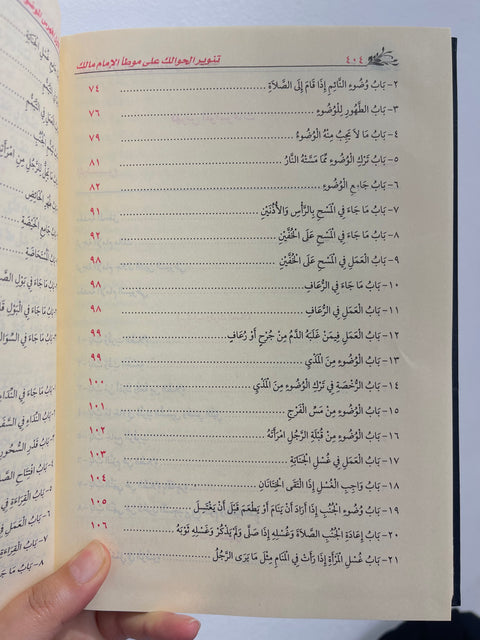 ٤٠٤ تنوير الحوالك على موطأ الإمام مالك
٢- بَابُ وُضُوءِ النَّائِمِ إِذَا قَامَ إِلَى الصَّلَاةِ ........ ٧٤
٣- بَابُ الطَّهُورِ لِلْوُضُوءِ ........ ٧٦
٤- بَابُ مَا لاَ يَجِبُ مِنْهُ الْوُضُوءُ ........ ٧٩
٥- بَابُ تَرْكِ الْوُضُوءِ مِمَّا مَسَّتْهُ النَّارُ ........ ٨١
٦- بَابُ جَامِعِ الْوُضُوءِ ........ ٨٢
٧- بَابُ مَا جَاءَ فِي الْمَسْحِ بِالرَّأْسِ وَالأُذُنَيْنِ ........ ٩١
٨- بَابُ مَا جَاءَ فِي الْمَسْحِ عَلَى الْخُفَّيْنِ ........ ٩٢
٩- بَابُ الْعَمَلِ فِي الْمَسْحِ عَلَى الْخُفَّيْنِ ........ ٩٨
١٠- بَابُ مَا جَاءَ فِي الرُّعَافِ ........ ٩٨
١١- بَابُ الْعَمَلِ فِي الرُّعَافِ ........ ٩٨
١٢- بَابُ الْعَمَلِ فِيمَنْ غَلَبَهُ الدَّمُ مِنْ جُرْحٍ أَوْ رُعَافٍ ........ ٩٩
١٣- بَابُ الْوُضُوءِ مِنَ الْمَذْيِ ........ ٩٩
١٤- بَابُ الرُّخْصَةِ فِي تَرْكِ الْوُضُوءِ مِنَ الْمَذْيِ ........ ١٠٠
١٥- بَابُ الْوُضُوءِ مِنْ مَسِّ الْفَرْجِ ........ ١٠١
١٦- بَابُ الْوُضُوءِ مِنْ قُبْلَةِ الرَّجُلِ امْرَأَتَهُ ........ ١٠٢
١٧- بَابُ الْعَمَلِ فِي غُسْلِ الْجَنَابَةِ ........ ١٠٣
١٨- بَابُ وَاجِبِ الْغُسْلِ إِذَا الْتَقَى الْخِتَانَانِ ........ ١٠٤
١٩- بَابُ وُضُوءِ الْجُنُبِ إِذَا أَرَادَ أَنْ يَنَامَ أَوْ يَطْعَمَ قَبْلَ أَنْ يَغْتَسِلَ ........ ١٠٥
٢٠- بَابُ إِعَادَةِ الْجُنُبِ الصَّلاَةَ وَغُسْلِهِ إِذَا صَلَّى وَلَمْ يَذْكُرْ وَغَسْلِهِ ثَوْبَهُ ........ ١٠٦
٢١- بَابُ غُسْلِ الْمَرْأَةِ إِذَا رَأَتْ فِي الْمَنَامِ مِثْلَ مَا يَرَى الرَّجُلُ ........